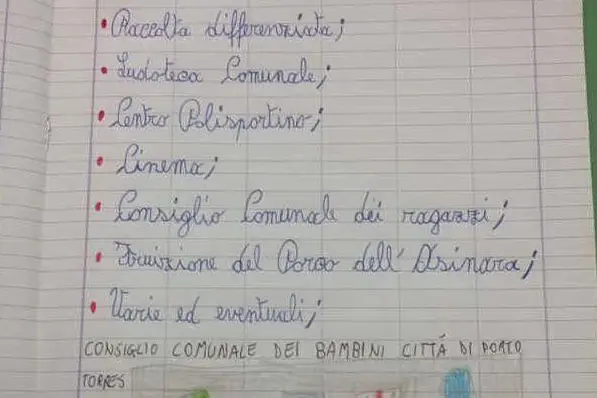 • Raccolta differenziata;
• Ludoteca Comunale;
• Centro Polisportivo;
• Cinema;
• Consiglio Comunale dei ragazzi;
• Fruizione del Parco dell'Asinara;
• Varie ed eventuali;
CONSIGLIO COMUNALE DEI BAMBINI CITTÁ DI PORTO
TORRES